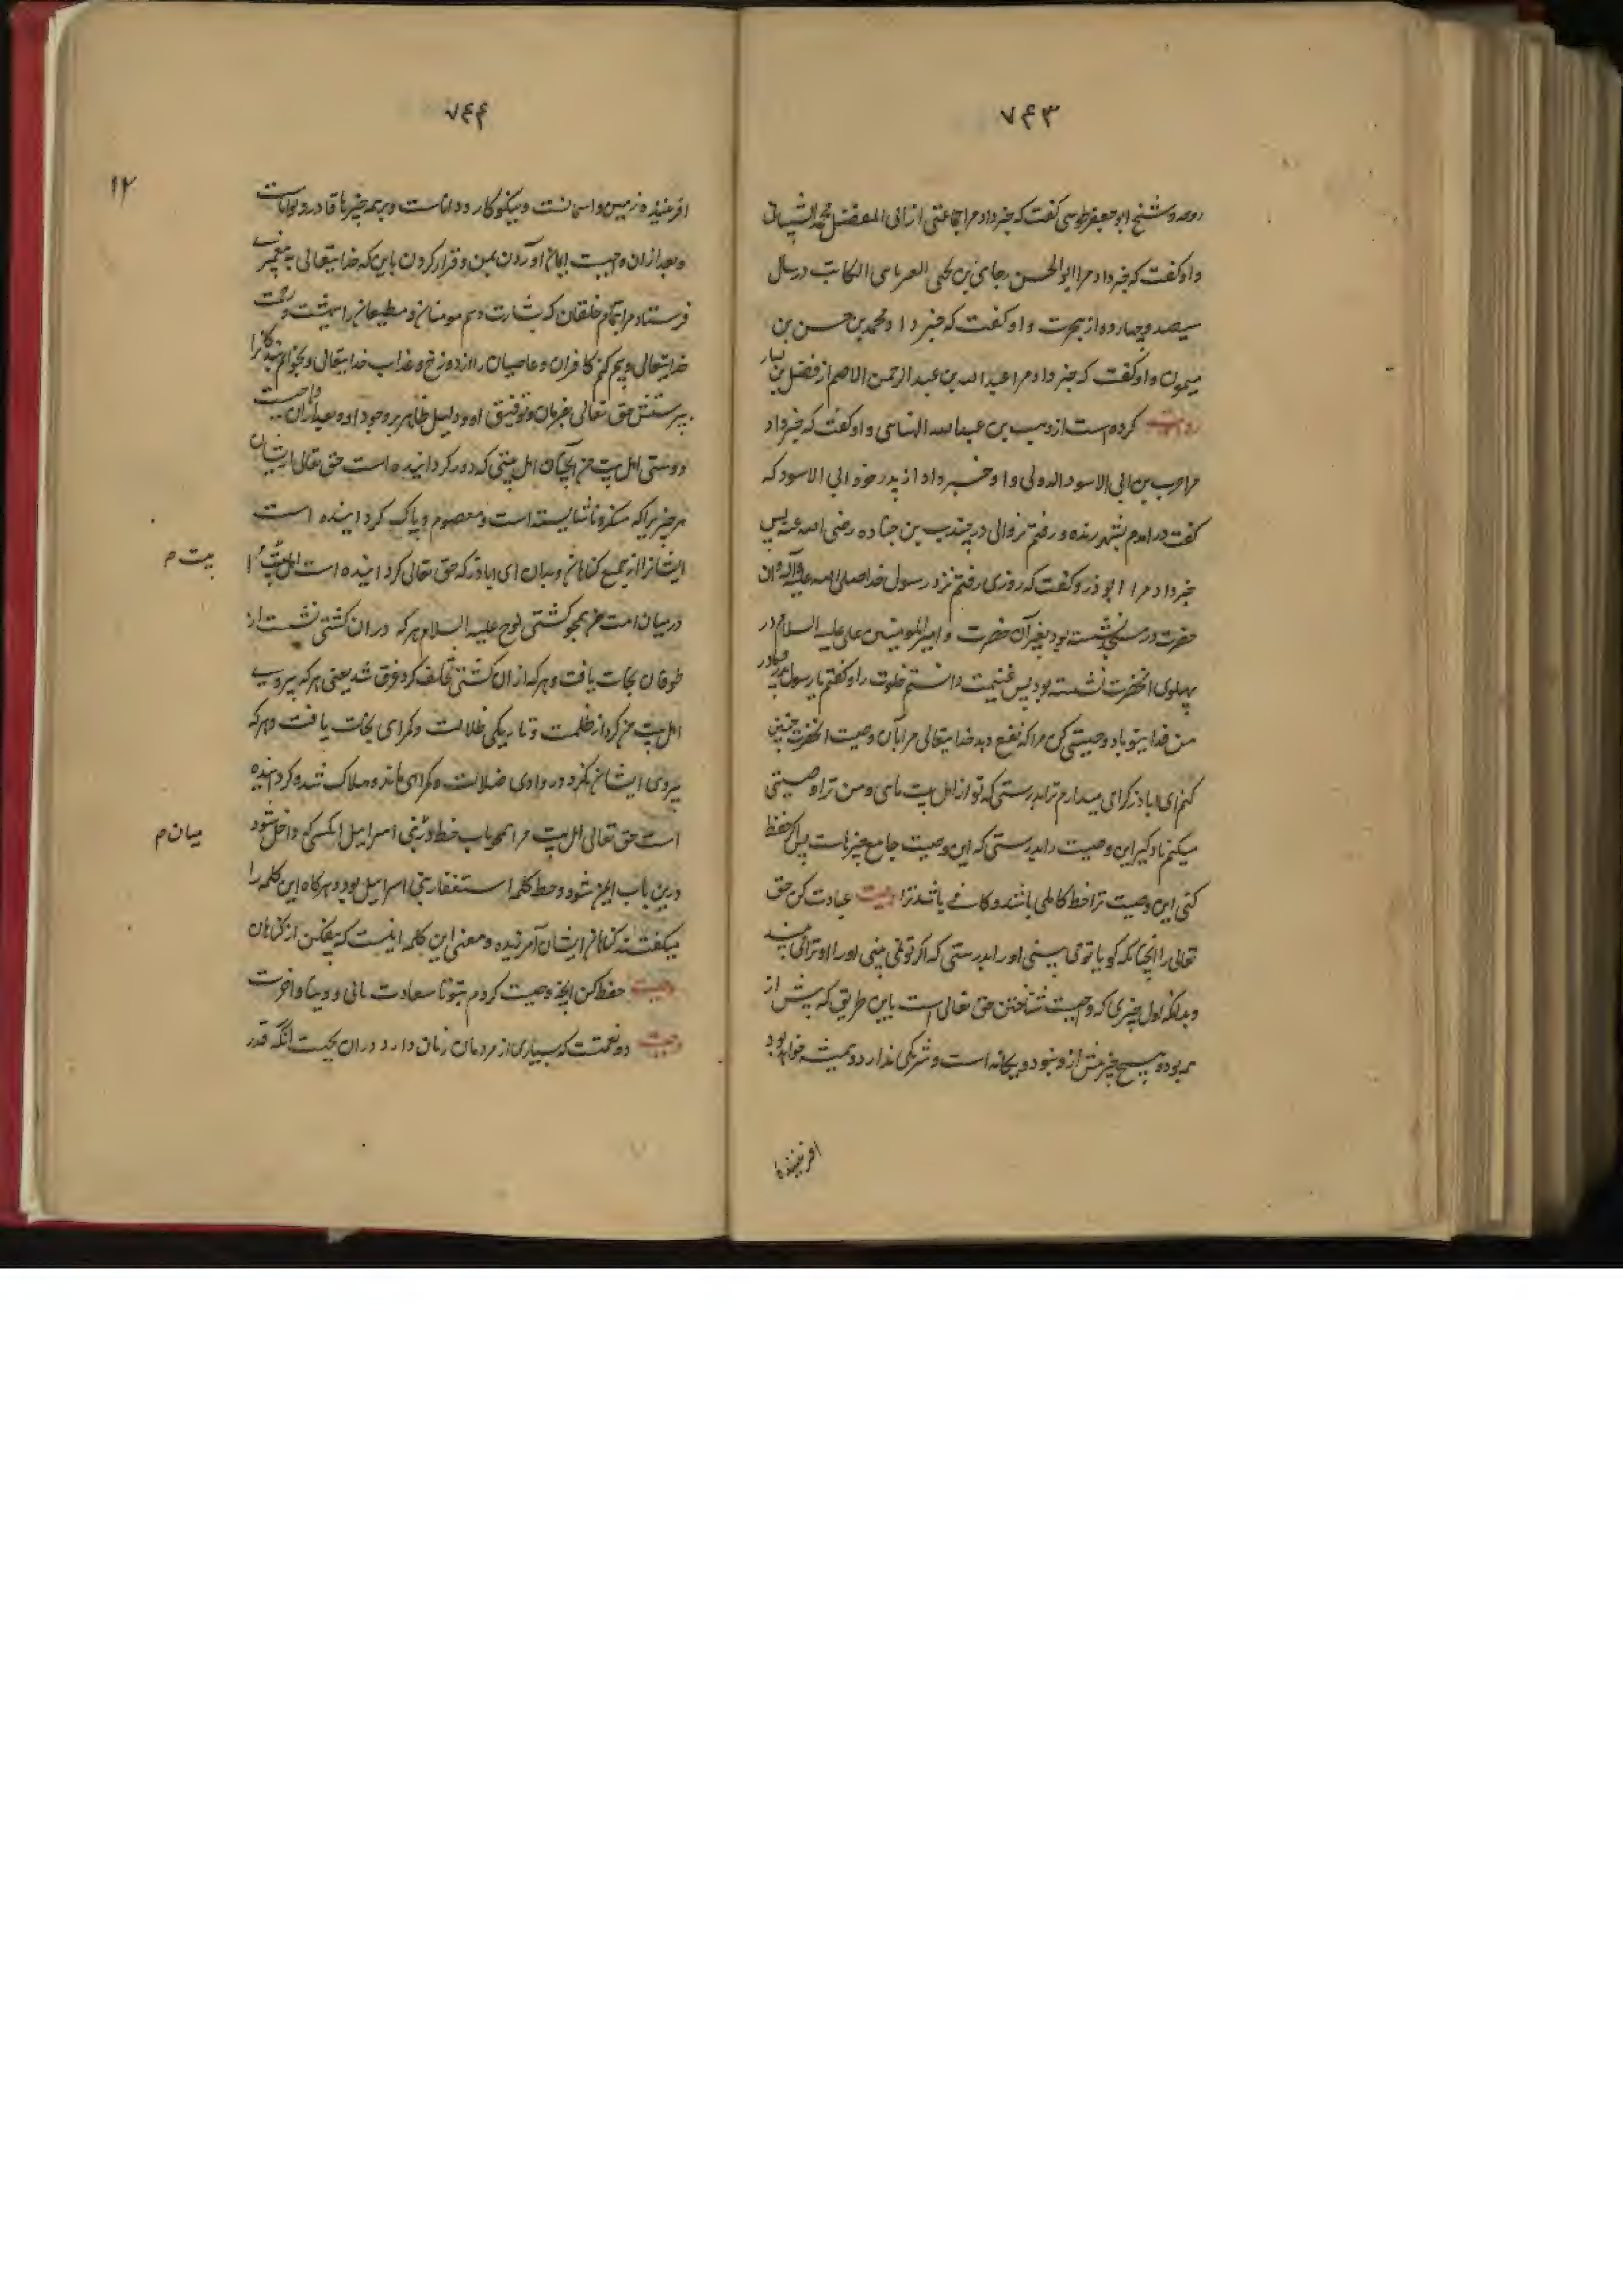 ۷۴۳
روحه و شیخ ابو جعفر طوسی گفت که خبر داد مرا جماعتی از ابی المفضل محمد الشیبانی
و او گفت که خبر داد مرا ابو الحسن رجاء بن یحیی العبرتایی الکاتب در سال
سیصد و چهارده از هجرت و او گفت که خبر داد محمد بن حسن بن
میمون و او گفت که خبر داد مرا عبد الله بن عبد الرحمن الاصم از فضل بن یسار
روایت کرده است از وهب بن عبد الله الهنائی و او گفت که خبر داد
مرا حرب بن ابی الاسود الدولی و او خبر داد از پدر خود ابی الاسود که
گفت در آمدم بشهر ربذه و رفتم نزد ابی ذر جندب بن جناده رضی الله عنه پس
خبر داد مرا ابو ذر و گفت که روزی رفتم نزد رسول خدا صلی الله علیه و آله و آن
حضرت در مسجد نشسته بود بغیر آن حضرت و امیر المومنین علی علیه السلام در
پهلوی آنحضرت نشسته بود پس غنیمت دانستم خلوت را و گفتم یا رسول الله پدر و مادر
من فدای تو باد وصیتی کن مرا که نفع دهد خدایتعالی مرا بآن وصیت آنحضرت چنین
کنم ای اباذر گرامی میدارم ترا بدرستی که تو از اهل بیت مائی و من ترا وصیتی
میکنم یاد گیر این وصیت را بدرستی که این وصیت جامع چیزهاست پس اگر حفظ
کنی این وصیت ترا حظ کاملی باشد و کافی باشد ترا وصیت عبادت کن حق
تعالی را آنچنانکه گویا تو می بینی او را بدرستی که اگر تو نمی بینی او را او ترا می بیند
و بدانکه اول چیزی که واجبست شناختن حق تعالی است باین طریق که پیش از
همه بوده و هیچ چیز پیش از او نبود و یگانه است و شریکی ندارد و همیشه خواهد بود
آفریننده
۷۴۴
۱۲
آفریننده زمین و آسمانست و نیکوکار و داناست و بر همه چیزها قادر و تواناست
و بعد از آن واجبست ایمان آوردن بمن و قرار کردن باین که خدایتعالی به پیغمبری
فرستاد مرا بتمام خلقان که بشارت دهم مومنان و مطیعان را ببهشت و رحمت
خدایتعالی و بیم کنم کافران و عاصیان را از دوزخ و عذاب خدایتعالی و بخوانم بندگان را
بپرستش حق تعالی بفرمان و توفیق او و دلیل ظاهر بر وجود او و بعد از آن واجبست
دوستی اهل بیت من آنچنان اهل بیتی که دور گردانیده است حق تعالی از ایشان
هر چیزیرا که منکر و ناشایسته است و معصوم و پاک گردانیده است
ایشانرا از جمیع گناهان و بدان ای اباذر که حق تعالی گردانیده است اهل بیت مرا
بیت م
در میان امت من همچو کشتی نوح علیه السلام هر که در آن کشتی نشست از
طوفان نجات یافت و هر که از آن کشتی تخلف کرد غرق شد یعنی هر که پیروی
اهل بیت من کرد از ظلمت و تاریکی ظلالت و گمراهی نجات یافت و هر که
پیروی ایشان نکرد در وادی ضلالت و گمراهی مانده هلاک شد و گردانیده
است حق تعالی اهل بیت مرا همچو باب خطه در بنی اسرائیل آنکسی که داخل شود
میان م
درین باب ایمن شود و حطه کلمه استغفار بنی اسرائیل بود و هر گاه این کلمه را
میگفتند گناهان ایشان آمرزیده و معنی این کلمه اینست که بیفکن از گناهان
وصیت حفظ کن آنچه وصیت کردم بتو تا سعادت یابی در دنیا و آخرت
وصیت دو نعمتست که بسیاری از مردمان زمان دارد در آن بجهت آنکه قدر